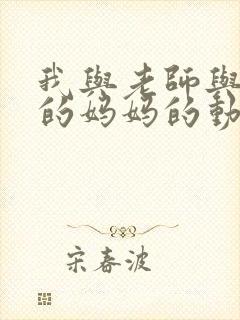 我與老師與
的媽媽的動
宋春波